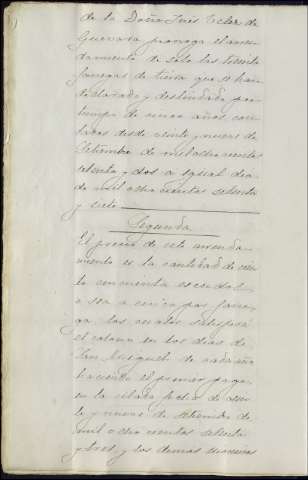 de la Doña Inés Velez de
Guevara prorroga el arren-
damiento de solo las treinta
fanegas de tierra que se han
declarado y deslindado por
tiempo de cinco años con-
tados desde veinte y nueve de
Setiembre de mil ochocientos
setenta y dos a igual dia
de mil ochocientos setenta
y siete
Segunda
El precio de este arrenda-
miento es la cantidad de cien-
to cincuenta escudos
o sea a cinco por fane-
ga los cuales satisfará
el colono en los dias de
San Miguel de cada año
haciendo el primer pago
en la citada fecha de vein-
te y nueve de Setiembre de
mil ochocientos setenta
y tres, y los demas sucesivos